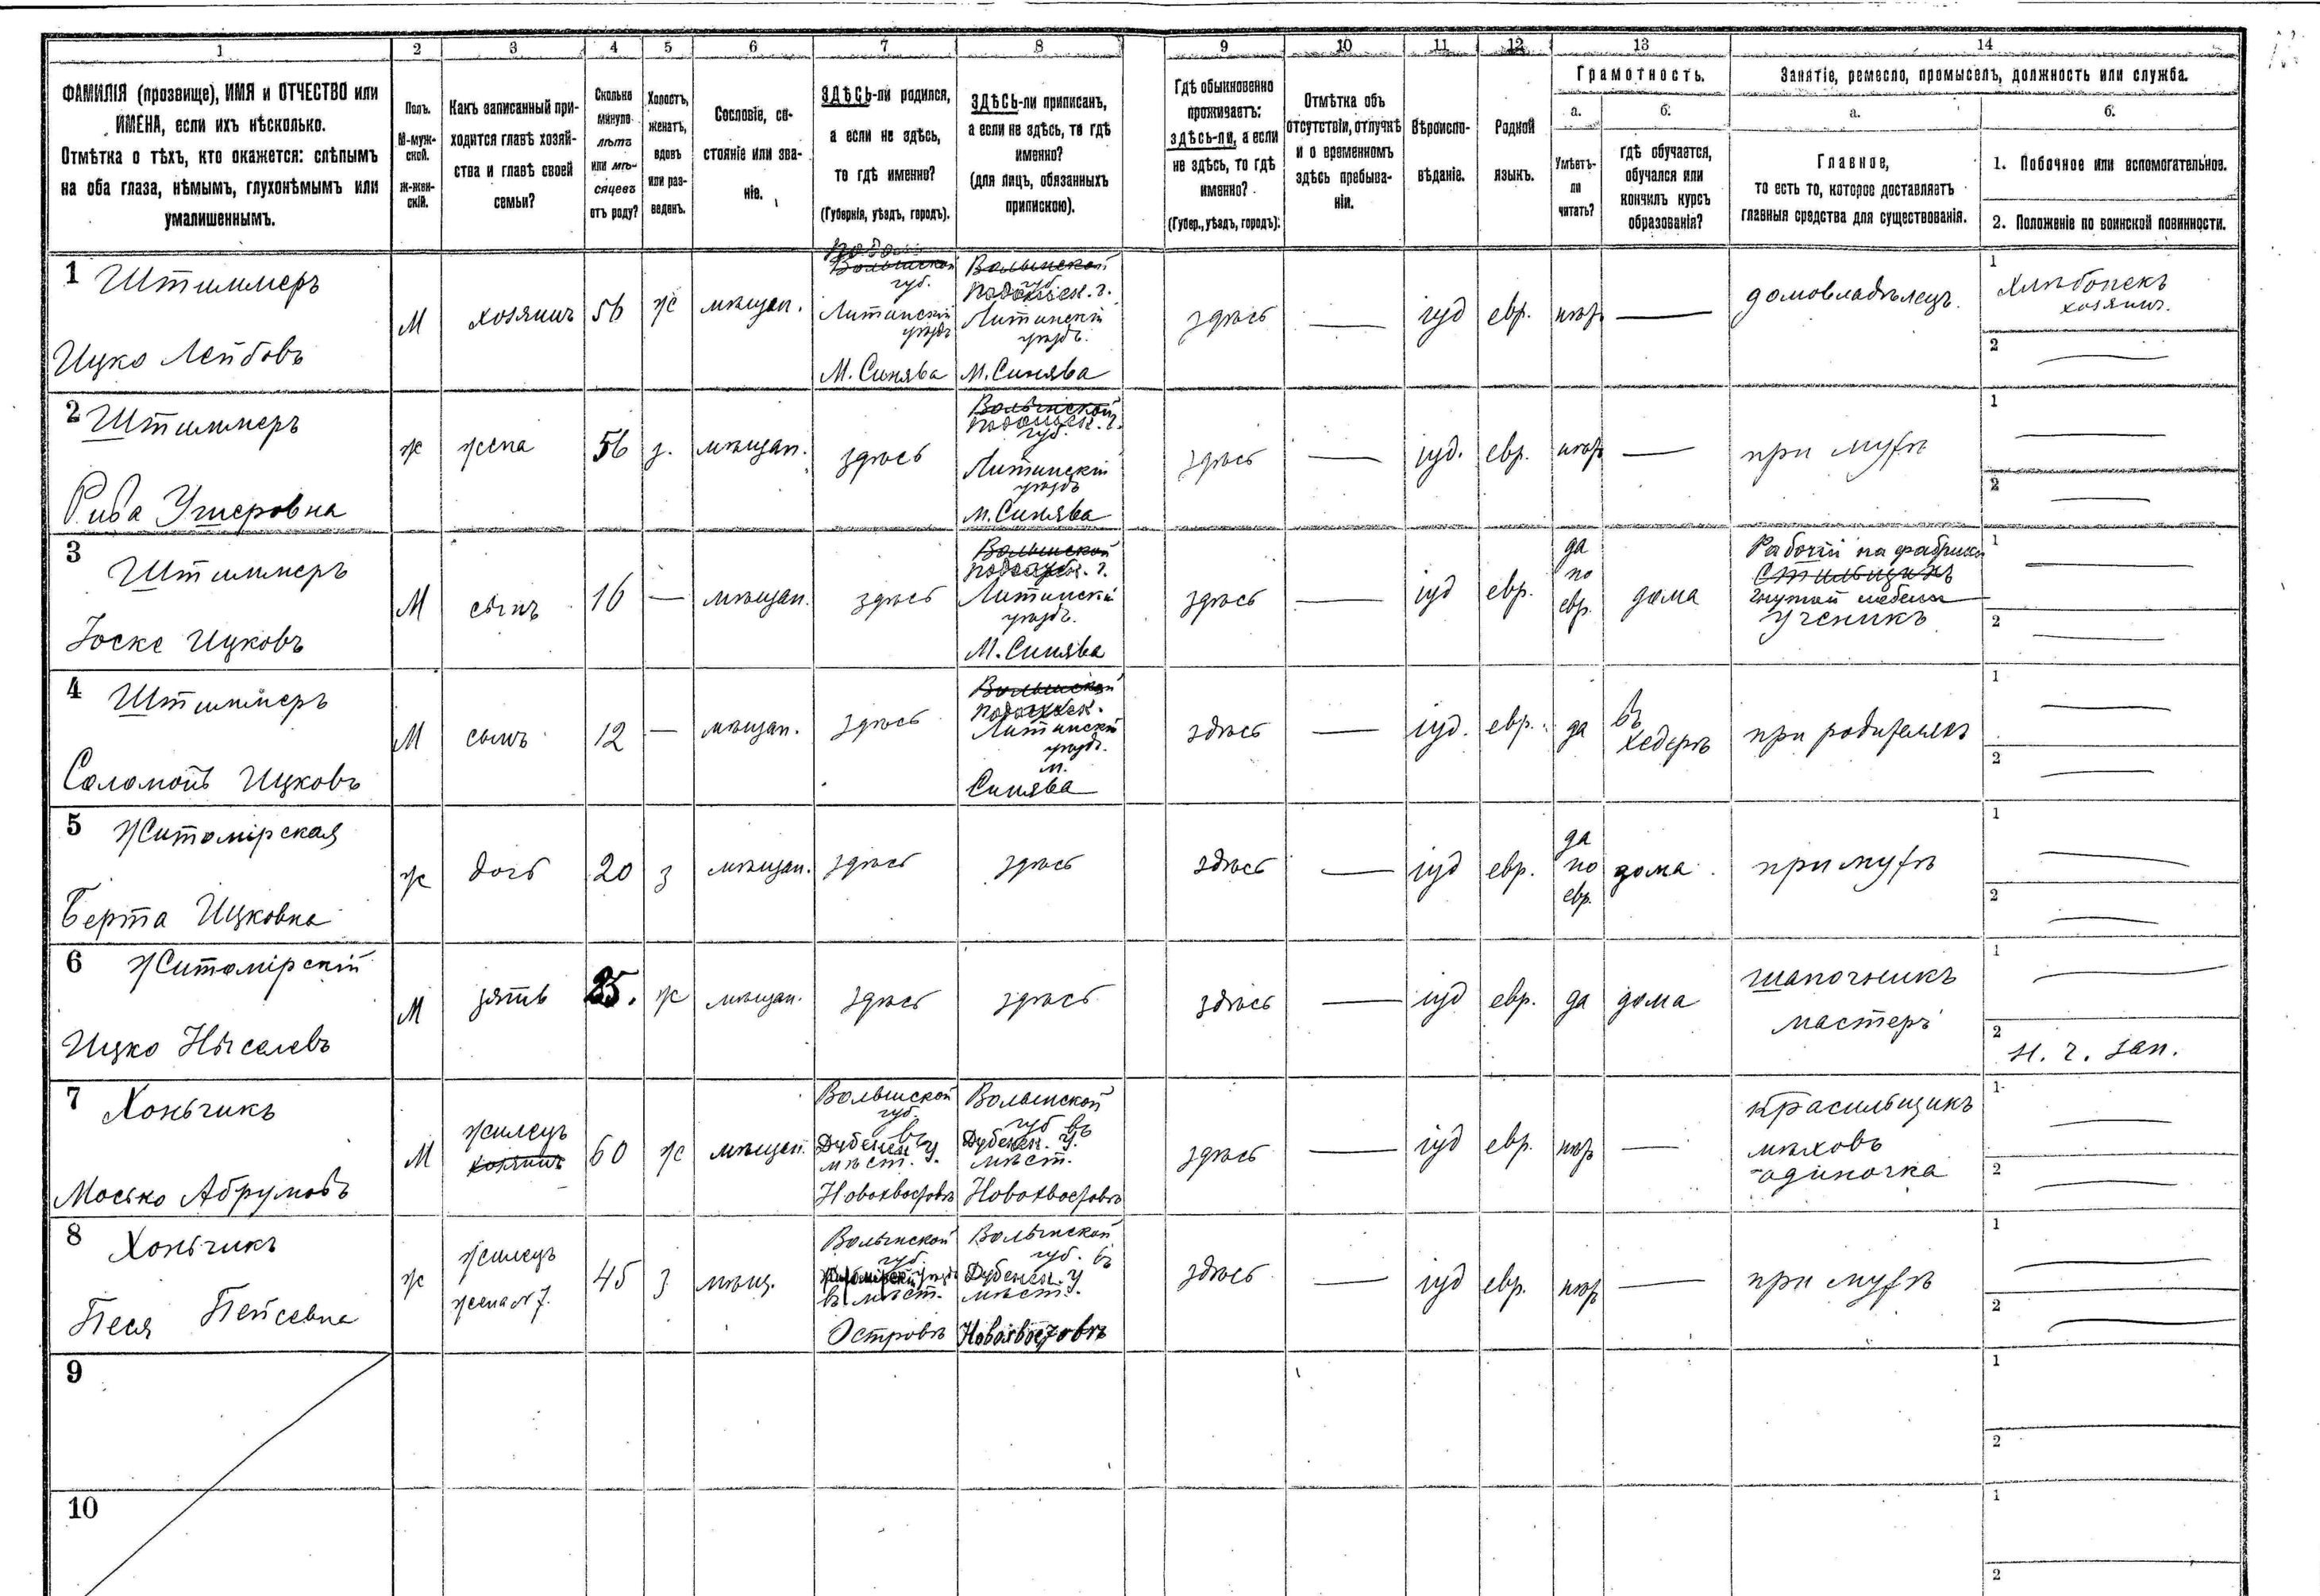 1 2 3 4 5 6 7 8 9 10 11 12 13 14
ФАМИЛІЯ (прозвище), ИМЯ и ОТЧЕСТВО или
ИМЕНА, если ихъ нѣсколько.
Отмѣтка о тѣхъ, кто окажется: слѣпымъ
на оба глаза, нѣмымъ, глухонѣмымъ или
умалишеннымъ.
Полъ.
М-муж-
ской.
Ж-жен-
скій.
Какъ записанный при-
ходится главѣ хозяй-
ства и главѣ своей
семьи?
Сколько
минуло
лѣтъ
или мѣ-
сяцевъ
отъ роду?
Холостъ,
женатъ,
вдовъ
или раз-
веденъ.
Сословіе, со-
стояніе или зва-
ніе.
ЗДѢСЬ-ли родился,
а если не здѣсь,
то гдѣ именно?
(Губернія, уѣздъ, городъ).
ЗДѢСЬ-ли приписанъ,
а если не здѣсь, то гдѣ
именно?
(для лицъ, обязанныхъ
припискою).
Гдѣ обыкновенно
проживаетъ:
здѣсь-ли, а если
не здѣсь, то гдѣ
именно?
(Губер., уѣздъ, городъ).
Отмѣтка объ
отсутствіи, отлучкѣ
и о временномъ
здѣсь пребыва-
ніи.
Вѣроиспо-
вѣданіе.
Родной
языкъ.
Грамотность.
а.
Умѣетъ-
ли
читать?
б.
гдѣ обучается,
обучался или
кончилъ курсъ
образованія?
Занятіе, ремесло, промыселъ, должность или служба.
а.
Главное,
то есть то, которое доставляетъ
главныя средства для существованія.
б.
1. Побочное или вспомогательное.
2. Положеніе по воинской повинности.
1 Штиммеръ
Ицко Лейбовъ
М
хозяинъ
56
ж
мѣщан.
Волынской
губ.
Литинскій
уѣздъ
М. Синява
Волынской
губ.
Подольск. г.
Литинскій
уѣздъ.
М. Синява
здѣсь
іуд
евр.
нѣтъ
домовладѣлецъ.
1
хозяинъ.
2
2 Штиммеръ
Рива Ушеровна
ж
жена
56
з.
мѣщан.
здѣсь
Волынской
Подольск. г.
губ.
Литинскій
уѣздъ
м. Синява
здѣсь
іуд.
евр.
нѣтъ
при мужѣ
1
2
3
Штиммеръ
Іоске Ицковъ
М
сынъ
16
мѣщан.
здѣсь
Волынской
Литинскій
уѣздъ.
М. Синява
здѣсь
іуд
евр.
да
по
евр.
дома
Рабочій на фабрикѣ
гнутой мебели
ученикъ
1
2
4 Штиммеръ
Соломонъ Ицковъ
М
сынъ
12
мѣщан.
здѣсь
Волынской
Литинскій
уѣздъ.
м.
Синява
здѣсь
іуд.
евр.
да
въ
хедерѣ
при родителяхъ
1
2
5 Житомірская
Берта Ицковна
ж
дочь
20
з
мѣщан.
здѣсь
здѣсь
здѣсь
іуд
евр.
да
по
евр.
дома
при мужѣ
1
2
6 Житомірскій
Ицко Ныселевъ
М
зять
25.
ж
мѣщан.
здѣсь
здѣсь
здѣсь
іуд
евр.
да
дома
шапочникъ
мастеръ
1
2
н. ч. зап.
7 Хоньчикъ
Мосько Абрумовъ
М
жилецъ
хозяинъ
60
ж
мѣщан.
Волынской
губ. въ
Дубенск. у.
мѣст.
Волынской
губ въ
Дубенск. у.
мѣст.
здѣсь
іуд
евр.
нѣтъ
Красильщикъ
мѣховъ
одиночка
1
2
8 Хоньчикъ
Песя Пейсевна
ж
жилецъ
жена № 7.
45
з
мѣщ.
Волынской
губ.
въ мѣст.
Островѣ
Волынской
губ. въ
Дубенск. у
мѣст.
здѣсь
іуд
евр.
нѣтъ
при мужѣ
1
2
9
1
2
10
1
2